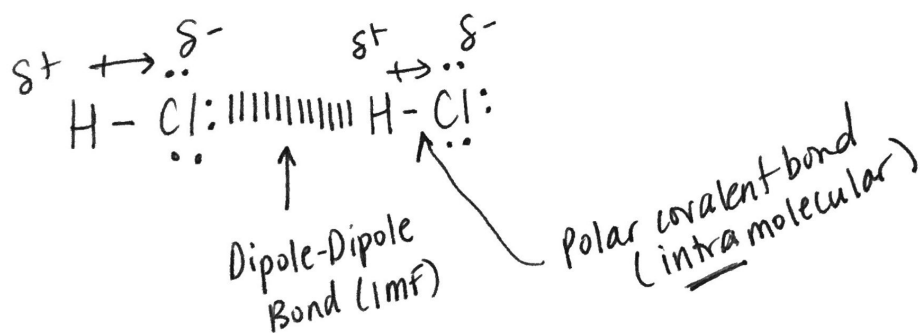 δ+ δ- δ+ δ-
H - Cl: H - Cl:
Dipole-Dipole
Bond (IMF)
Polar covalent bond
(intramolecular)